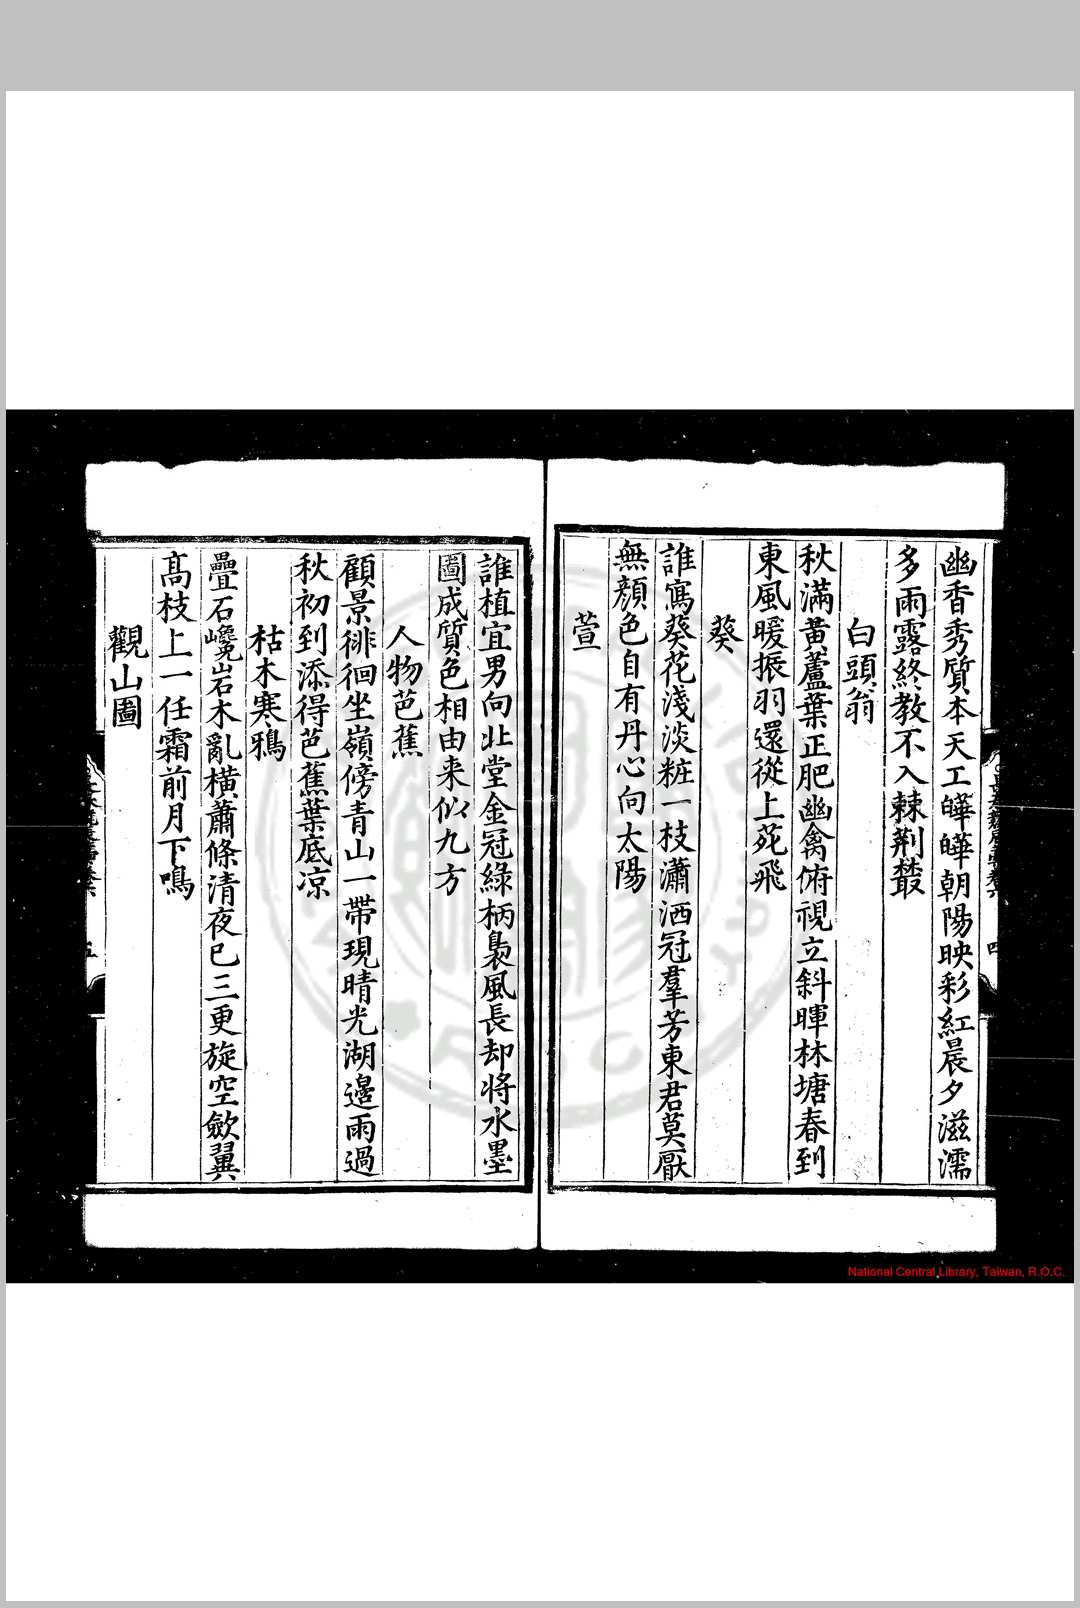 幽香秀質本天工皣皣朝陽映彩紅晨夕滋濡
多雨露終教不入棘荆叢
白頭翁
秋滿黃蘆葉正肥幽禽俯視立斜暉林塘春到
東風暖振羽還從上苑飛
葵
誰寫葵花淺淡粧一枝瀟洒冠羣芳東君莫厭
無顔色自有丹心向太陽
萱
誰植宜男向北堂金冠綠柄裊風長却将水墨
圖成質色相由来似九方
人物芭蕉
顧景徘徊坐嶺傍青山一帶現晴光湖邊雨過
秋初到添得芭蕉葉底凉
枯木寒鴉
疊石巉岩木亂横蕭條清夜已三更旋空歛翼
高枝上一任霜前月下鳴
觀山圖
四
五
National Central Library, Taiwan, R.O.C.